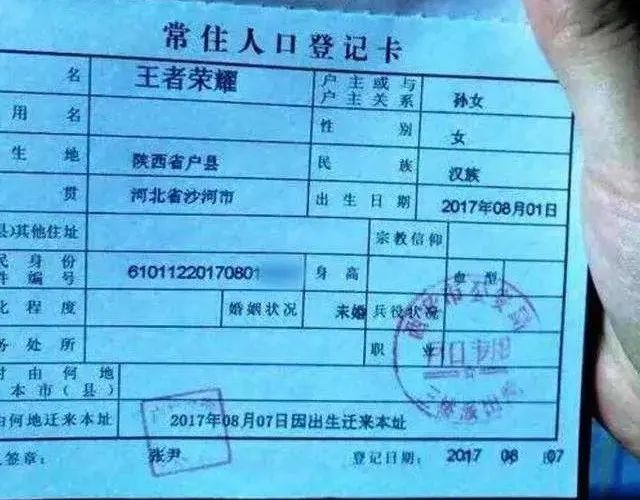 常住人口登记卡
名 王者荣耀 户主或与户主关系 孙女
用名 性别 女
生地 陕西省户县 民族 汉族
贯 河北省沙河市 出生日期 2017年08月01日
县)其他住址 宗教信仰
民身份件编号 61011220170801 身高 血型
化程度 婚姻状况 未婚 兵役状况
务处所 职业
时由何地
本市(县)
由何地迁来本址 2017年08月07日因出生迁来本址
人签章: 张尹 登记日期: 2017 08 07
户口专用